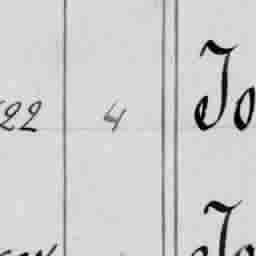 22 4 Jo
Jo